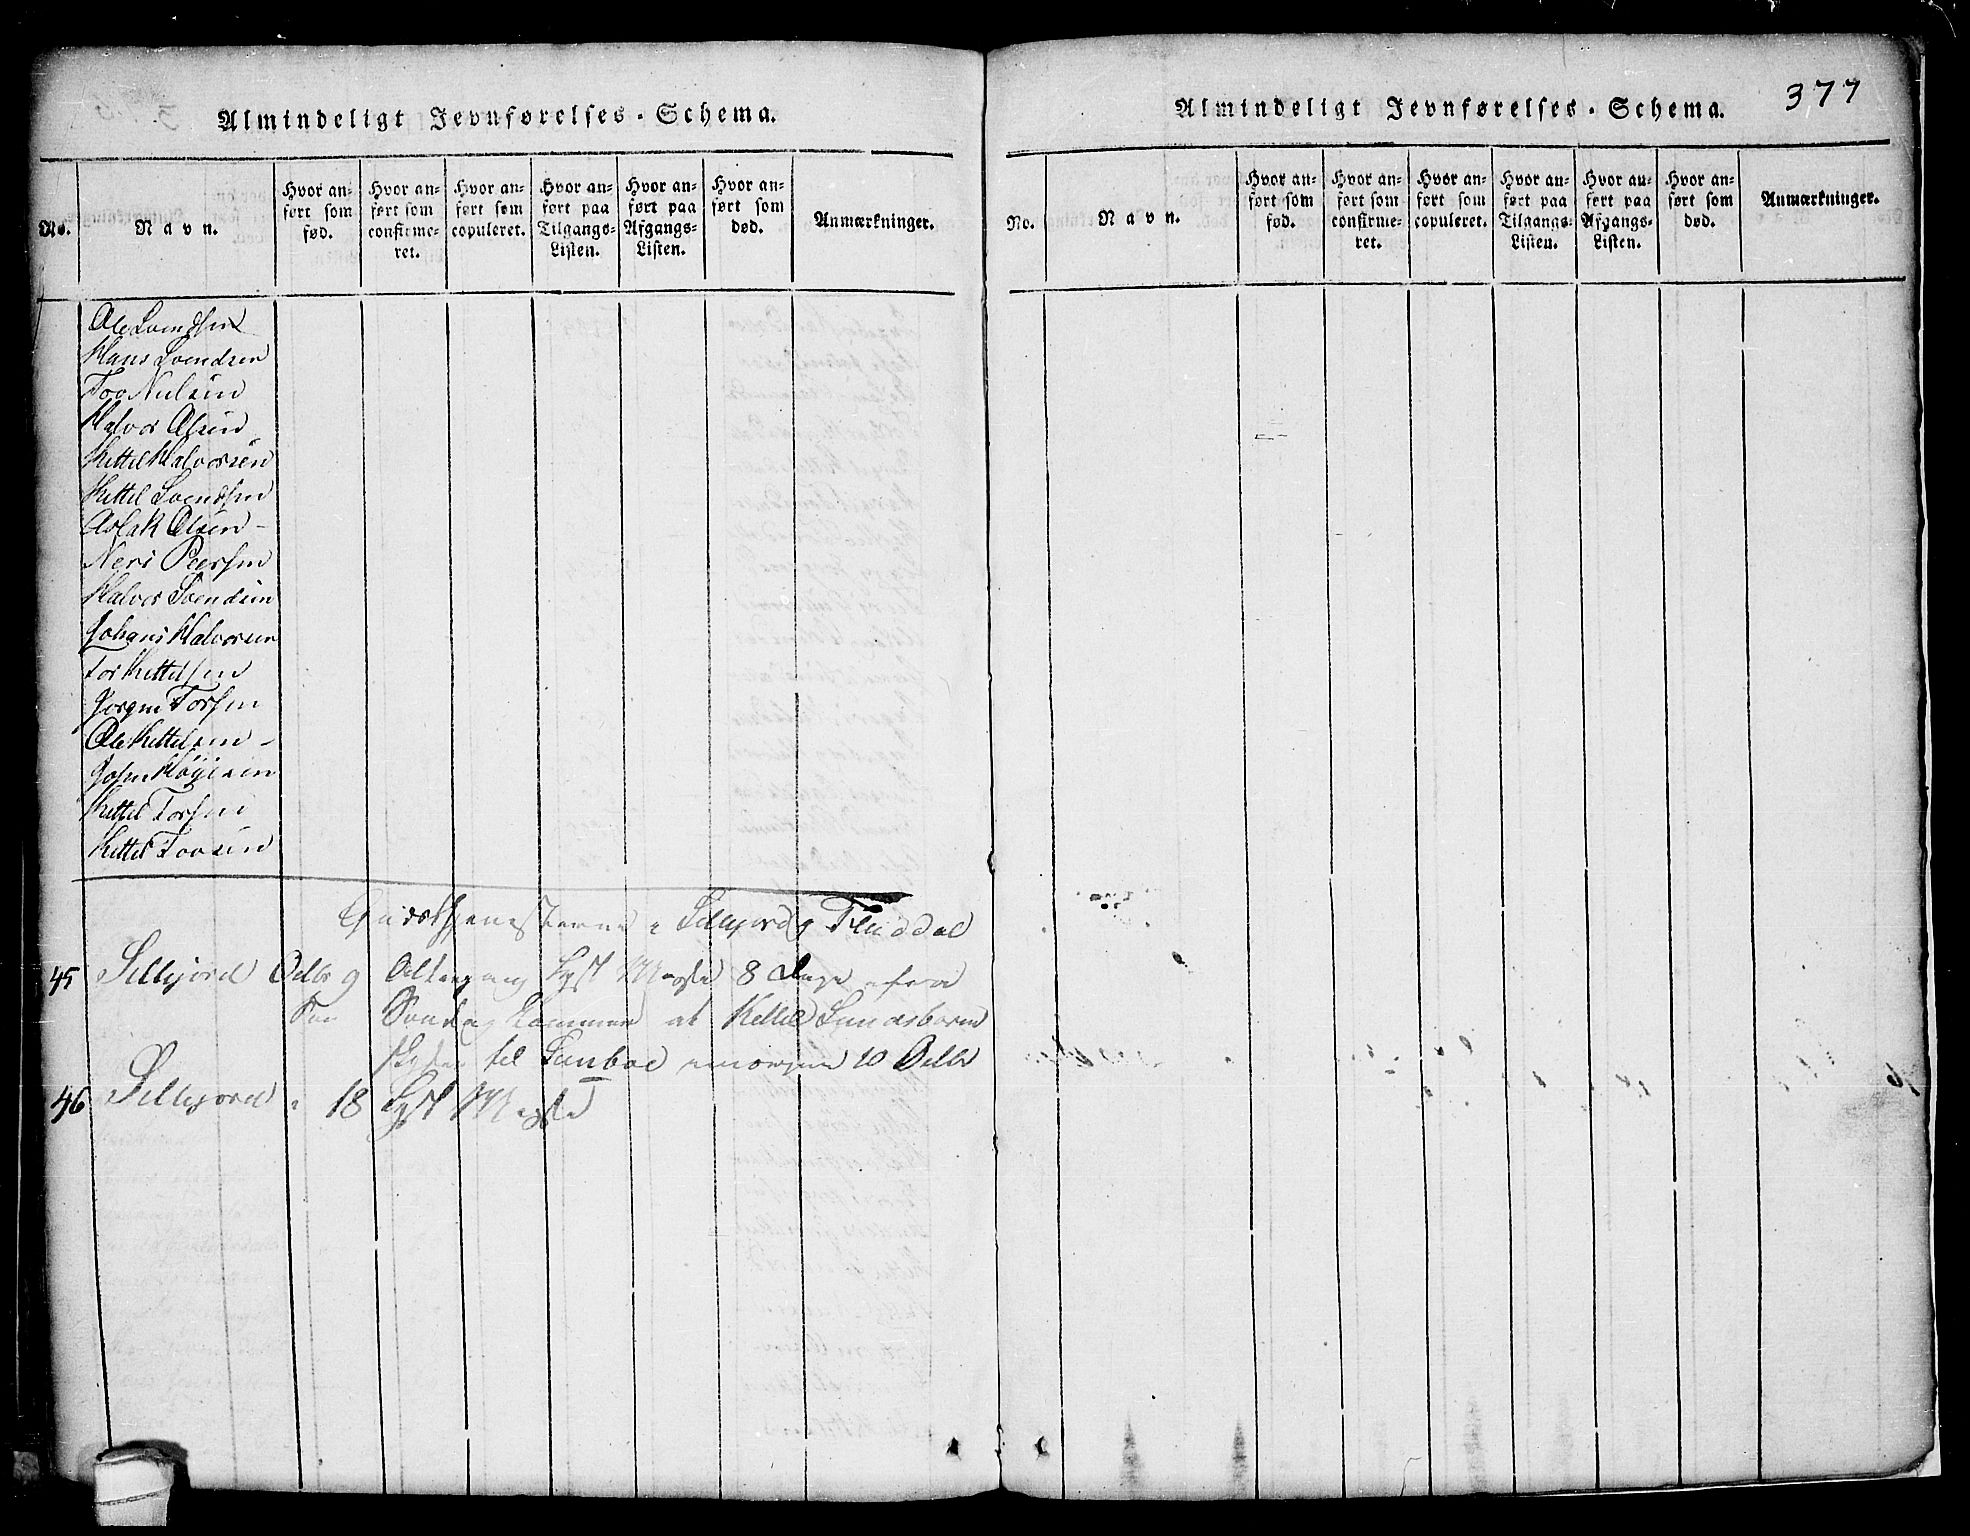 Almindeligt Jevnførelses-Schema.
No.
Navn.
Hvor an-
ført som
fød.
Hvor an-
ført som
confirme-
ret.
Hvor an-
ført som
copuleret.
Hvor an-
ført paa
Tilgangs-
Listen.
Hvor an-
ført paa
Afgangs-
Listen.
Hvor an-
ført som
død.
Anmærkninger.
Ole Svendsen
Hans Svendsen
Tov Nielsen
Halvor Olsen
Kittel Halvorsen
Kittel Svendsen
Aslak Olsen -
Neri Peersen
Halvor Svendsen
Johans Halvorsen
Tor Kittelsen
Jorgen Torsen
Ole Kittelsen -
John
Kittel Torsen
Kittel Tovsen
i Sillejord og Fladdal
45 Sillejord Octbr 9 Altergang Lyst 8 Dage
Søndag Kommer at Kittel Sundsbarm
til 10 Octbr
46 Sillejord 18 Lyst
Almindeligt Jevnførelses-Schema.
377
No.
Navn.
Hvor an-
ført som
fød.
Hvor an-
ført som
confirme-
ret.
Hvor an-
ført som
copuleret.
Hvor an-
ført paa
Tilgangs-
Listen.
Hvor an-
ført paa
Afgangs-
Listen.
Hvor an-
ført som
død.
Anmærkninger.